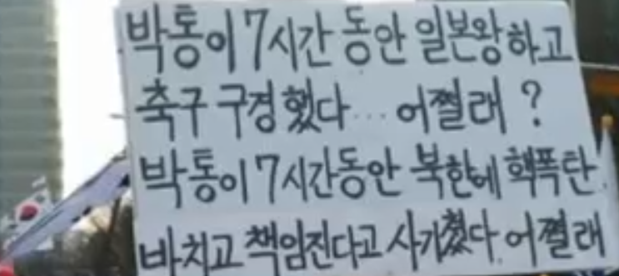 박통이 7시간 동안 일본왕하고
축구 구경했다... 어쩔래 ?
박통이 7시간동안 북한에 핵폭탄
바치고 책임진다고 사기쳤다. 어쩔래